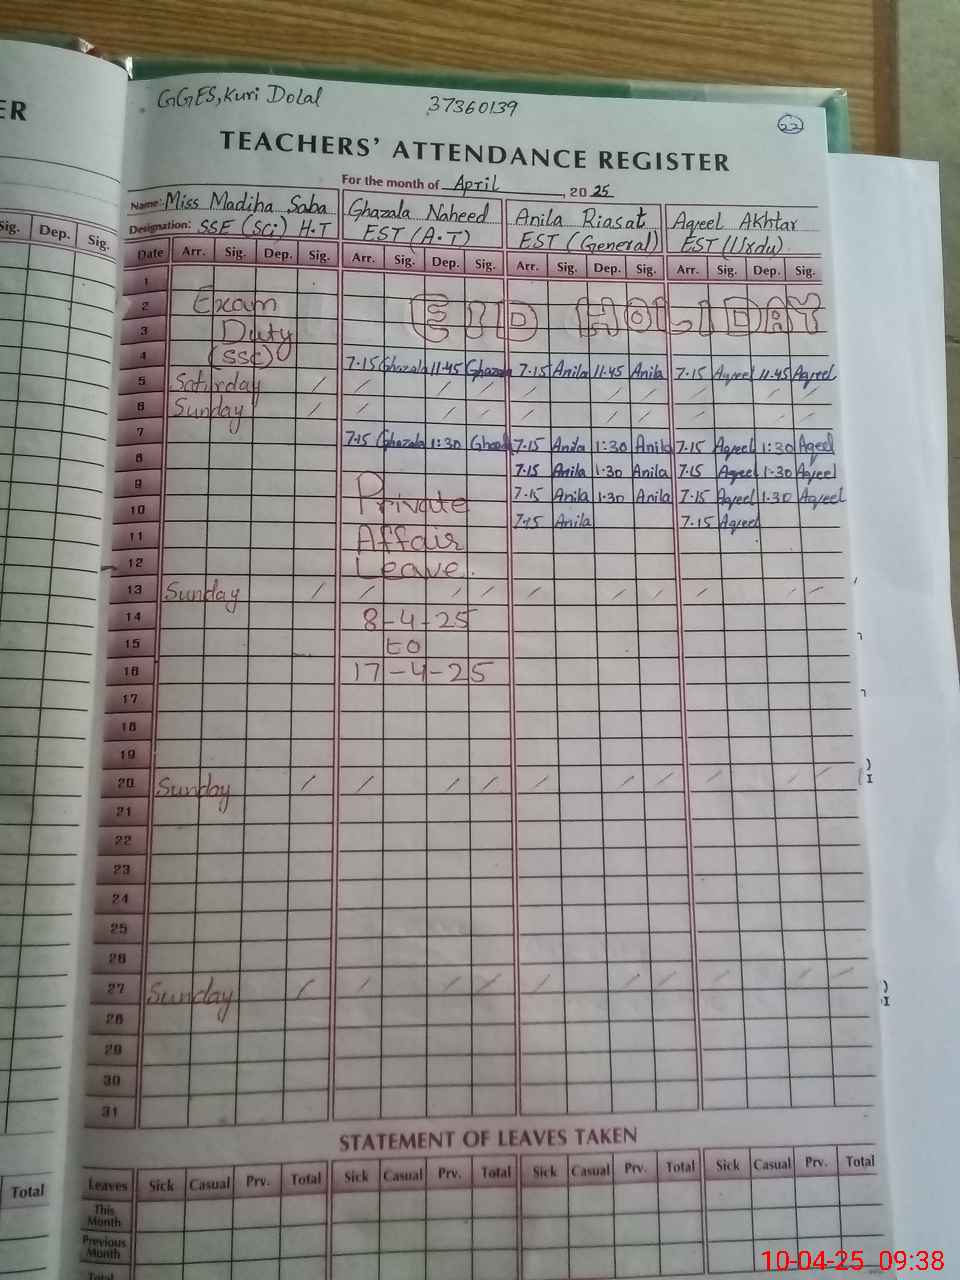 GGES, Kuri Dolal 37360139 22
TEACHERS' ATTENDANCE REGISTER
For the month of April, 2025
Name: Miss Madiha Saba Ghazala Naheed Anila Riasat Aqeel Akhtar
Designation: SSE (Sci) H.T EST (A.T) EST (General) EST (Urdu)
Date Arr. Sig. Dep. Sig. Arr. Sig. Dep. Sig. Arr. Sig. Dep. Sig. Arr. Sig. Dep. Sig.
1
2 Exam EID HOLIDAY
3 Duty
4 (SSC) 7.15 Ghazala 11.45 Ghazala 7.15 Anila 11.45 Anila 7.15 Aqeel 11.45 Aqeel
5 Saturday
6 Sunday
7 7.15 Ghazala 1:30 Ghazala 7.15 Anila 1:30 Anila 7.15 Aqeel 1:30 Aqeel
8 7.15 Anila 1.30 Anila 7.15 Aqeel 1.30 Aqeel
9 Private 7.15 Anila 1.30 Anila 7.15 Aqeel 1.30 Aqeel
10 7.15 Anila 7.15 Aqeel
11 Affair
12 Leave.
13 Sunday
14 8-4-25
15 to
16 17-4-25
17
18
19
20 Sunday
21
22
23
24
25
26
27 Sunday
28
29
30
31
STATEMENT OF LEAVES TAKEN
Leaves Sick Casual Prv. Total Sick Casual Prv. Total Sick Casual Prv. Total Sick Casual Prv. Total
This
Month
Previous
Month
Total
ER
Sig. Dep. Sig.
Total
10-04-25 09:38